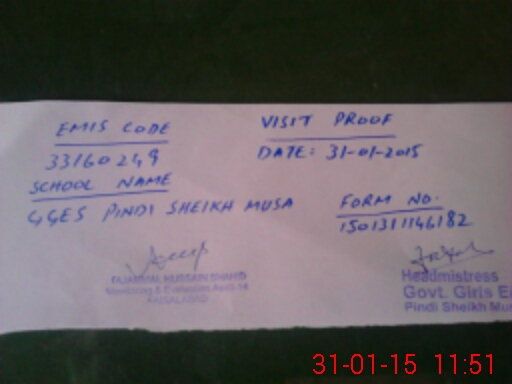 EMIS CODE
33160249
SCHOOL NAME
GGES PINDI SHEIKH MUSA
VISIT PROOF
DATE: 31-01-2015
FORM NO.
1501311146182
HUSSAIN SHAHID
Monitoring & Evaluation
FAISALABAD
Headmistress
Govt. Girls E
Pindi Sheikh Mu
31-01-15 11:51